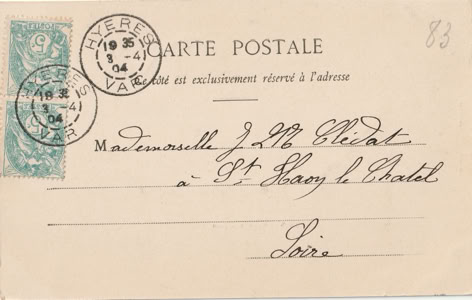 83
CARTE POSTALE
Ce côté est exclusivement réservé à l'adresse
HYERES
19 35
3 -4
04
VAR
HYERES
3 -4
04
VAR
5
5
Mademoiselle J M Clédat
à St Haon le Chatel
Loire